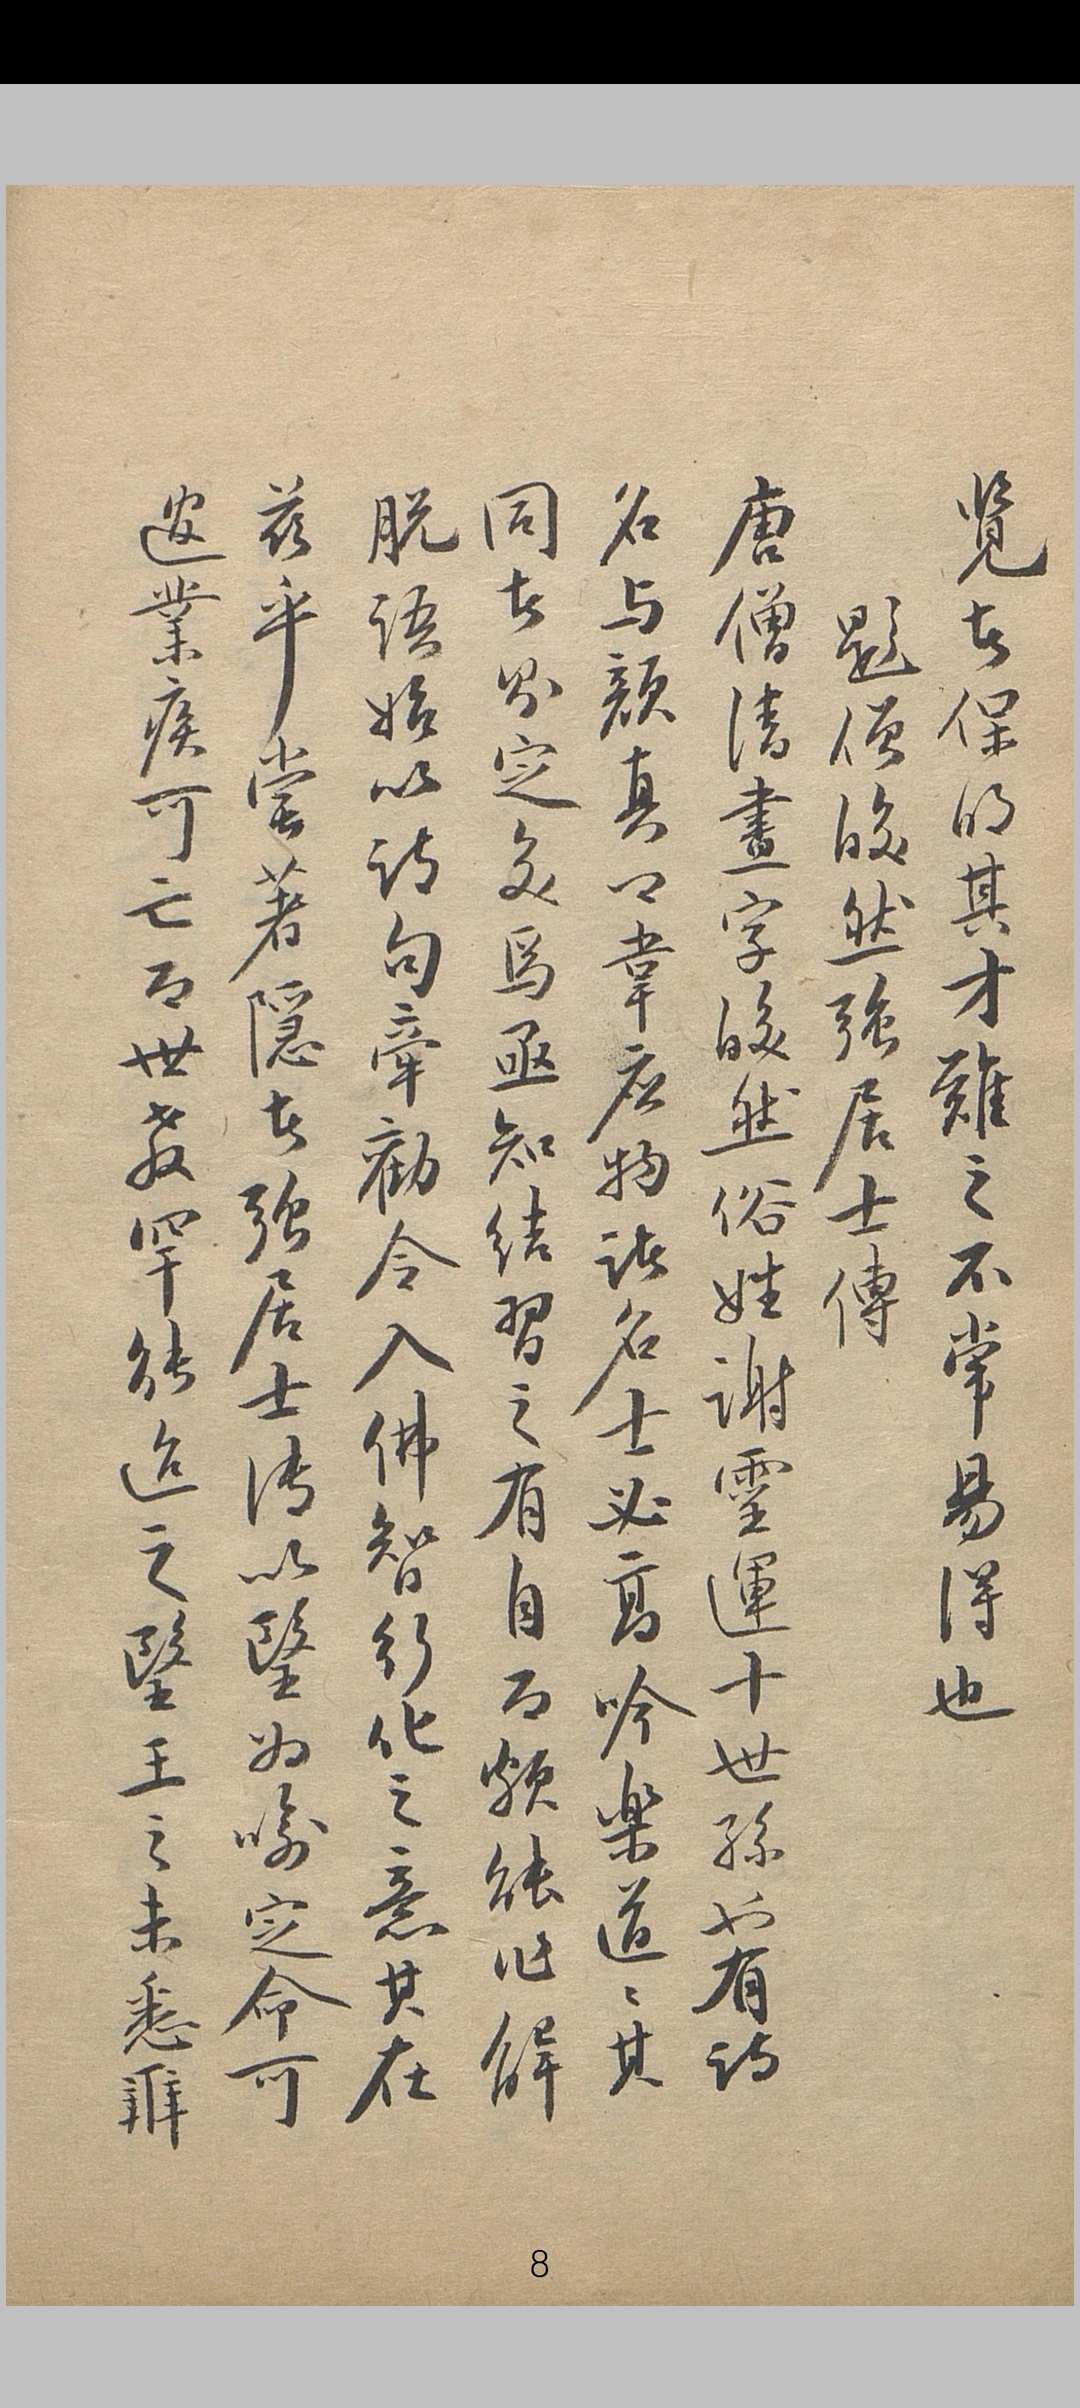 覽者保明其才難之不常易得也
題僧皎然強居士傳
唐僧清晝字皎然俗姓謝靈運十世孫也有詩
名与顏真卿韋应物諸名士必高吟樂道々其
同者則定交焉亟知結習之有自而頗能作解
脫語始以詩句牽勸令入佛智行化之意其在
茲乎嘗著隱者強居士傳以毉為喻定命可
遷業疾可亡而世教罕能迨之毉王之未悉
8